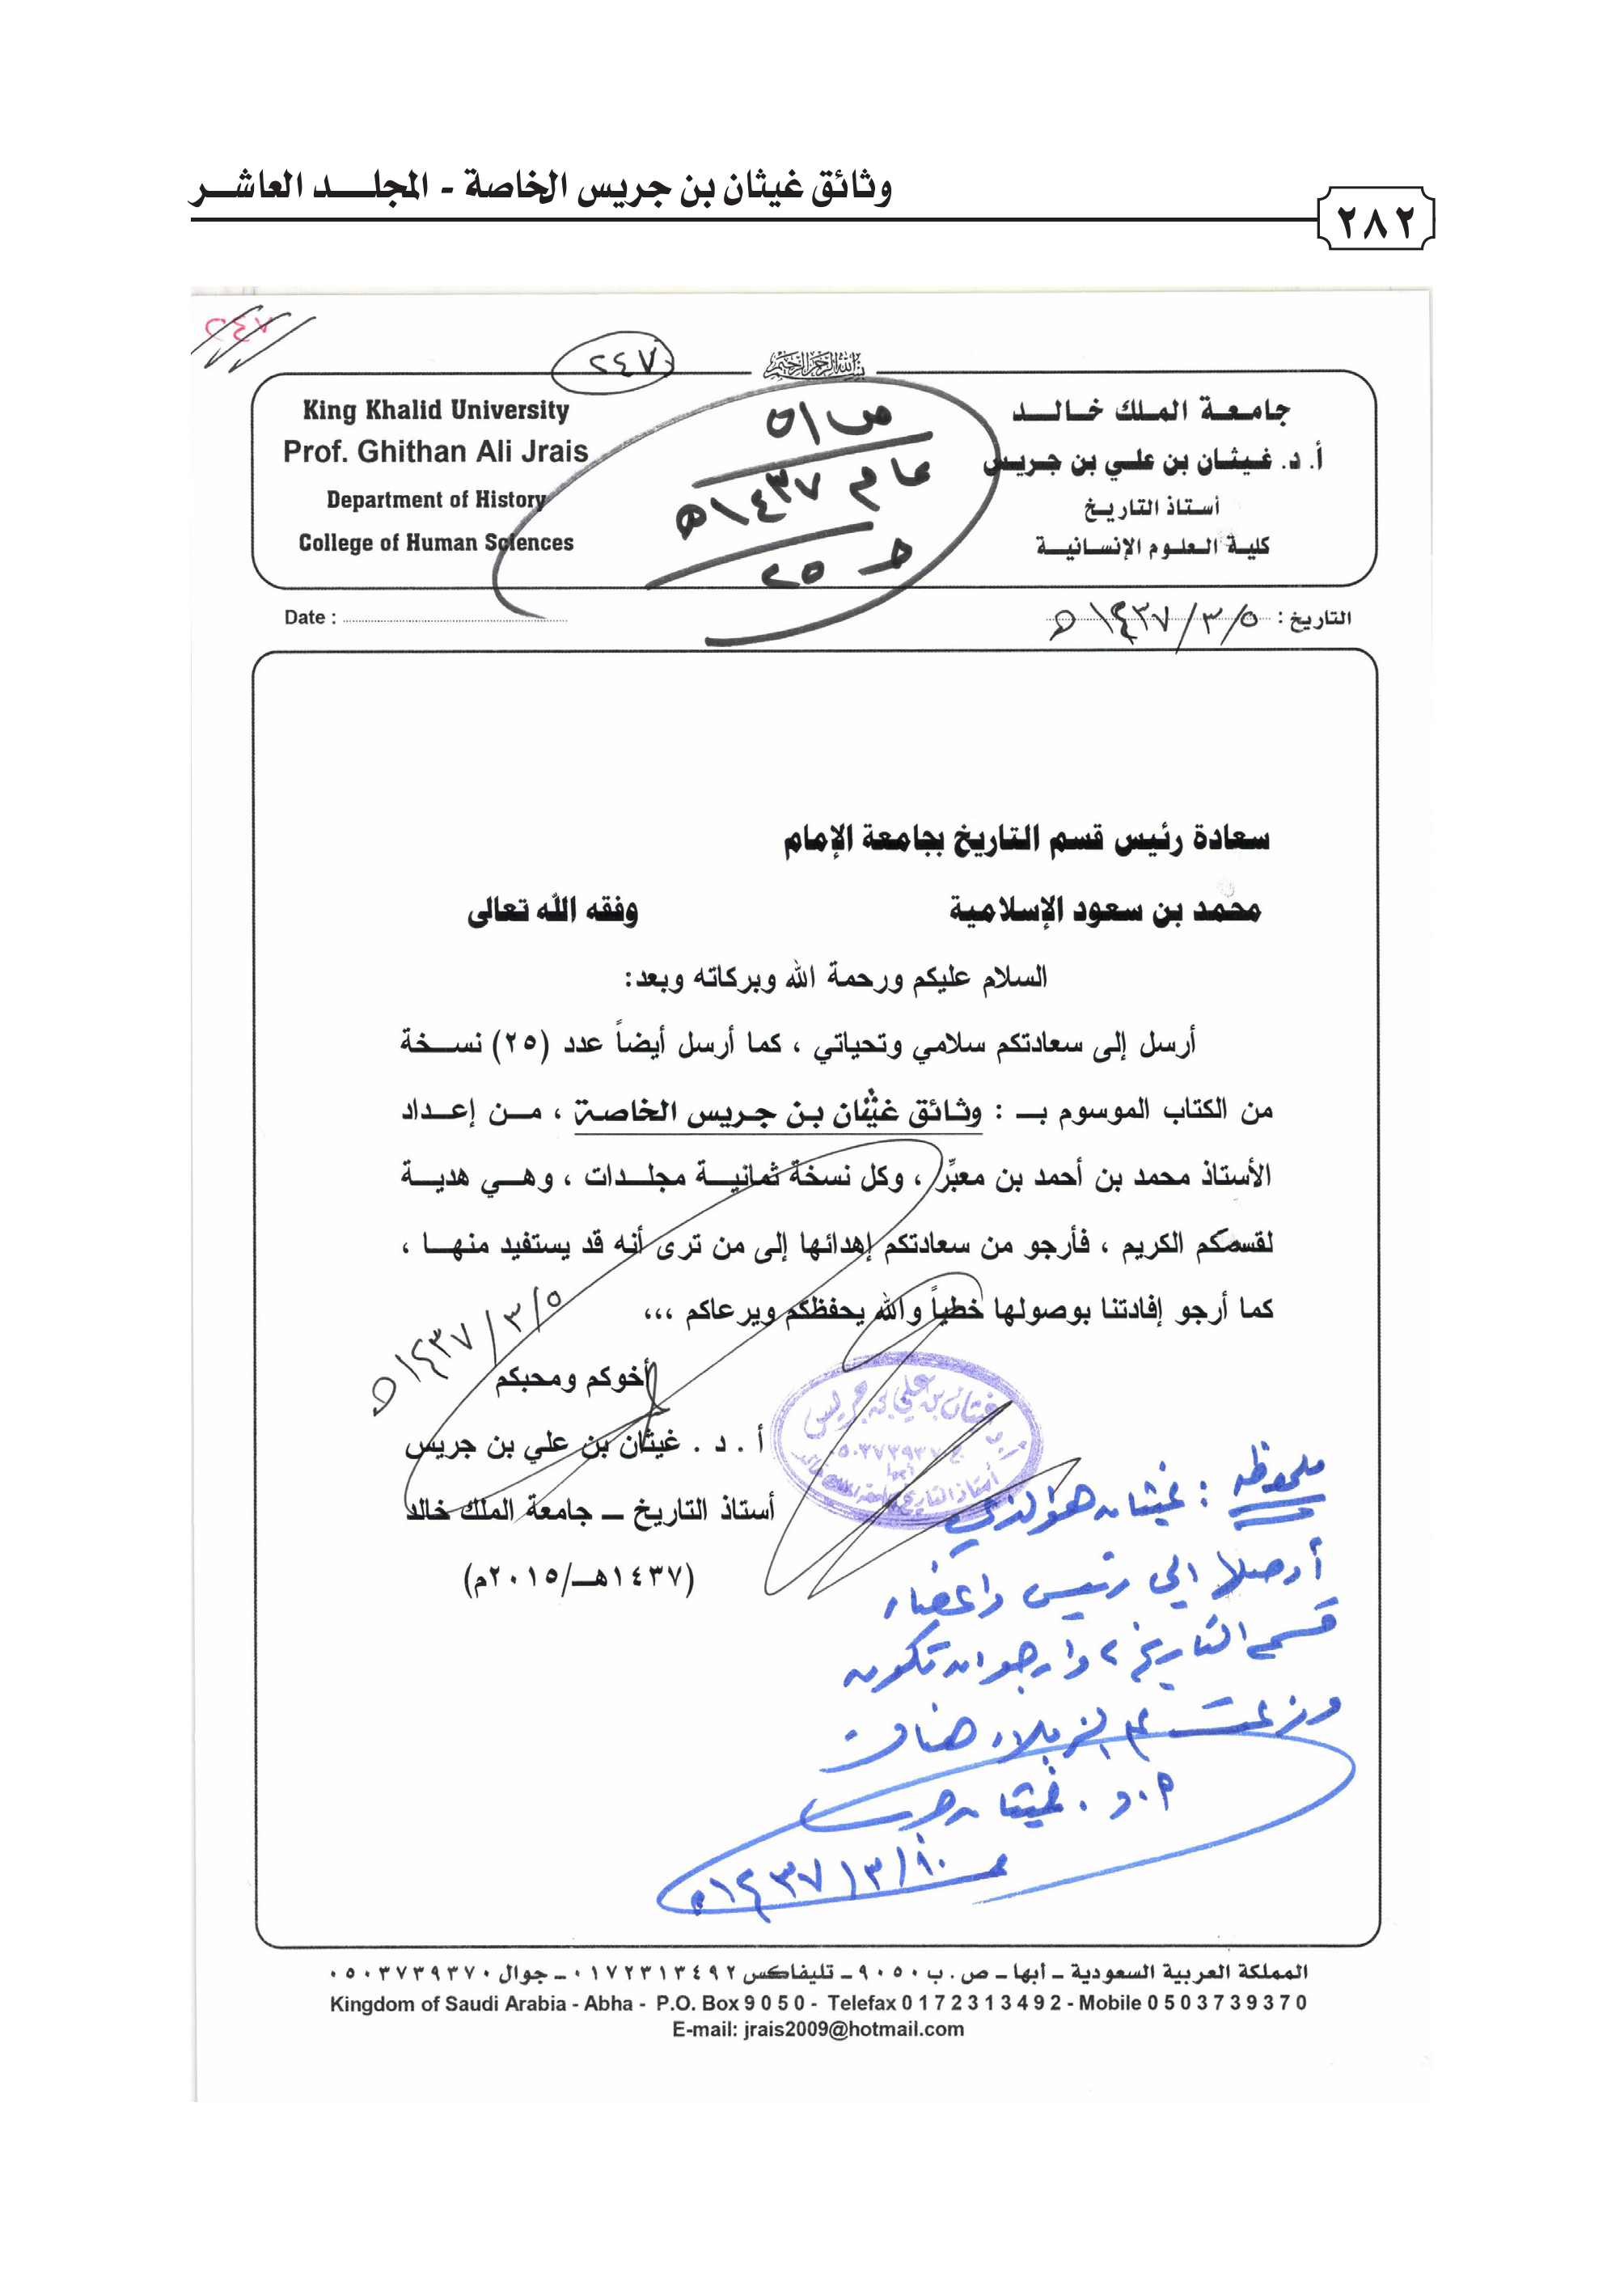 وثائق غيثان بن جريس الخاصة - المجلـــد العاشـــر
٢٨٢
٢٤٧
٢٤٧
بسم الله الرحمن الرحيم
جامعة الملك خالد
أ. د. غيثان بن علي بن جريس
أستاذ التاريخ
كلية العلوم الإنسانية
King Khalid University
Prof. Ghithan Ali Jrais
Department of History
College of Human Sciences
ص/٥١
عام ١٤٣٧هـ
حـ ٢٥
التاريخ : ٥/ ٣/ ١٤٣٧هـ
Date :
سعادة رئيس قسم التاريخ بجامعة الإمام
محمد بن سعود الإسلامية وفقه الله تعالى
السلام عليكم ورحمة الله وبركاته وبعد:
أرسل إلى سعادتكم سلامي وتحياتي ، كما أرسل أيضاً عدد (٢٥) نسخة
من الكتاب الموسوم بـ : وثائق غيثان بن جريس الخاصة ، من إعداد
الأستاذ محمد بن أحمد بن معبِّر ، وكل نسخة ثمانية مجلدات ، وهي هدية
لقسمكم الكريم ، فأرجو من سعادتكم إهدائها إلى من ترى أنه قد يستفيد منها ،
كما أرجو إفادتنا بوصولها خطياً والله يحفظكم ويرعاكم ،،،
٥/ ٣/ ١٤٣٧هـ
أخوكم ومحبكم
أ . د . غيثان بن علي بن جريس
أستاذ التاريخ – جامعة الملك خالد
(١٤٣٧هـ/٢٠١٥م)
أ.د غيثان بن علي بن جريس
ج ٠٥٠٣٧٣٩٣٧٠
أبها
أستاذ التاريخ بجامعة الملك خالد
ملحوظة : غيثان هو الذي
أوصلها الى رئيس واعضاء
قسم التاريخ ، وارجو ان تكون
وزعت على الزملاء هناك
أ.د. غيثان جريس
١٠/ ٣/ ١٤٣٧هـ
المملكة العربية السعودية – أبها – ص. ب ٩٠٥٠ – تليفاكس ٠١٧٢٣١٣٤٩٢ – جوال ٠٥٠٣٧٣٩٣٧٠
Kingdom of Saudi Arabia - Abha - P.O. Box 9 0 5 0 - Telefax 0 1 7 2 3 1 3 4 9 2 - Mobile 0 5 0 3 7 3 9 3 7 0
E-mail: jrais2009@hotmail.com